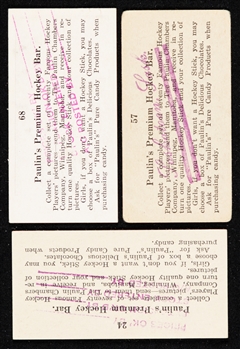 68
Paulin's Premium Hockey Bar.
Collect a complete set of seventy Famous Hockey
Players' pictures—send them to The Paulin Chambers
Company, Winnipeg, Manitoba and receive in re-
turn one quality Hockey Stick and your collection of
pictures.
Girls, if you don't want a Hockey Stick, you may
choose a box of Paulin's Delicious Chocolates.
Ask for "Paulin's" Pure Candy Products when
purchasing candy.
57
Paulin's Premium Hockey Bar.
Collect a complete set of seventy Famous Hockey
Players' pictures—send them to The Paulin Chambers
Company, Winnipeg, Manitoba and receive in re-
turn one quality Hockey Stick and your collection of
pictures.
Girls, if you don't want a Hockey Stick, you may
choose a box of Paulin's Delicious Chocolates.
Ask for "Paulin's" Pure Candy Products when
purchasing candy.
24
Paulin's Premium Hockey Bar.
Collect a complete set of seventy Famous Hockey
Players' pictures—send them to The Paulin Chambers
Company, Winnipeg, Manitoba, and receive in re-
turn one quality Hockey Stick and your collection of
pictures.
Girls, if you don't want a Hockey Stick, you may
choose a box of Paulin's Delicious Chocolates.
Ask for "Paulin's" Pure Candy Products when
purchasing candy.